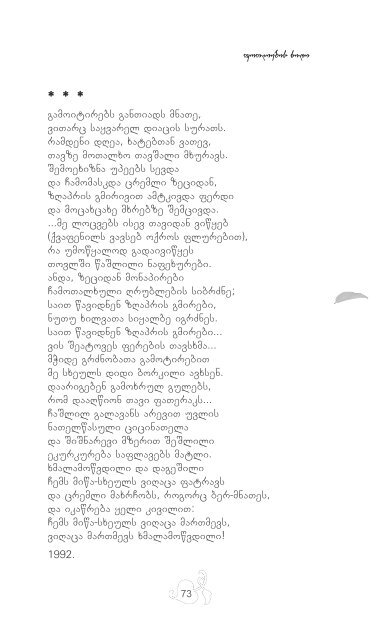 * * *
გამოიტირებს განთიადს მნათე,
ვითარც საყვარელ დიაცის სურათს.
რამდენი დღეა, ხატებთან ვათევ,
თავზე მოთალხო თავშალი მხურავს.
შემოეხიზნა უპეებს სევდა
და ჩამომასკდა ცრემლი ზეციდან,
ზღაპრის გმირივით ამტკივდა ფერდი
და მოცახცახე მხრებზე შემცივდა.
...მე ლოცვებს ისევ თავიდან ვიწყებ
(ქვაფენილს ვავსებ ოქროს ფლურებით),
რა უმოწყალოდ გადაივიწყეს
თოვლში წაშლილი ნაფეხურები.
ანდა, ზეციდან მონაპირები
ჩამოთალხული ღრუბლების სიბრძნე;
საით წავიდნენ ზღაპრის გმირები,
ნუთუ ხილვათა სიყალბე იგრძნეს.
საით წავიდნენ ზღაპრის გმირები...
ვის შეატოვეს ფერების თავსხმა...
მჭიდე გრძნობათა გამოტირებით
მე სხეულს დიდი ბორკილი ავხსენ.
დაარიგებენ გამოხრულ გულებს,
რომ დააღწიონ თავი ფათერაკს...
ჩაშლილ გალავანს არევით უვლის
ნათელწასული ციცინათელა
და შიშნარევი მზერით შეშლილი
ეკურკურება საფლავებს მატლი.
ხმალამოწვდილი და დაგეშილი
ჩემს მიწა-სხეულს ვიღაცა ფატრავს
და ცრემლი მახრჩობს, როგორც ბერ-მნათეს,
და იკაწრება ყელი კივილით:
ჩემს მიწა-სხეულს ვიღაცა მართმევს,
ვიღაცა მართმევს ხმალამოწვდილი!
1992.
73